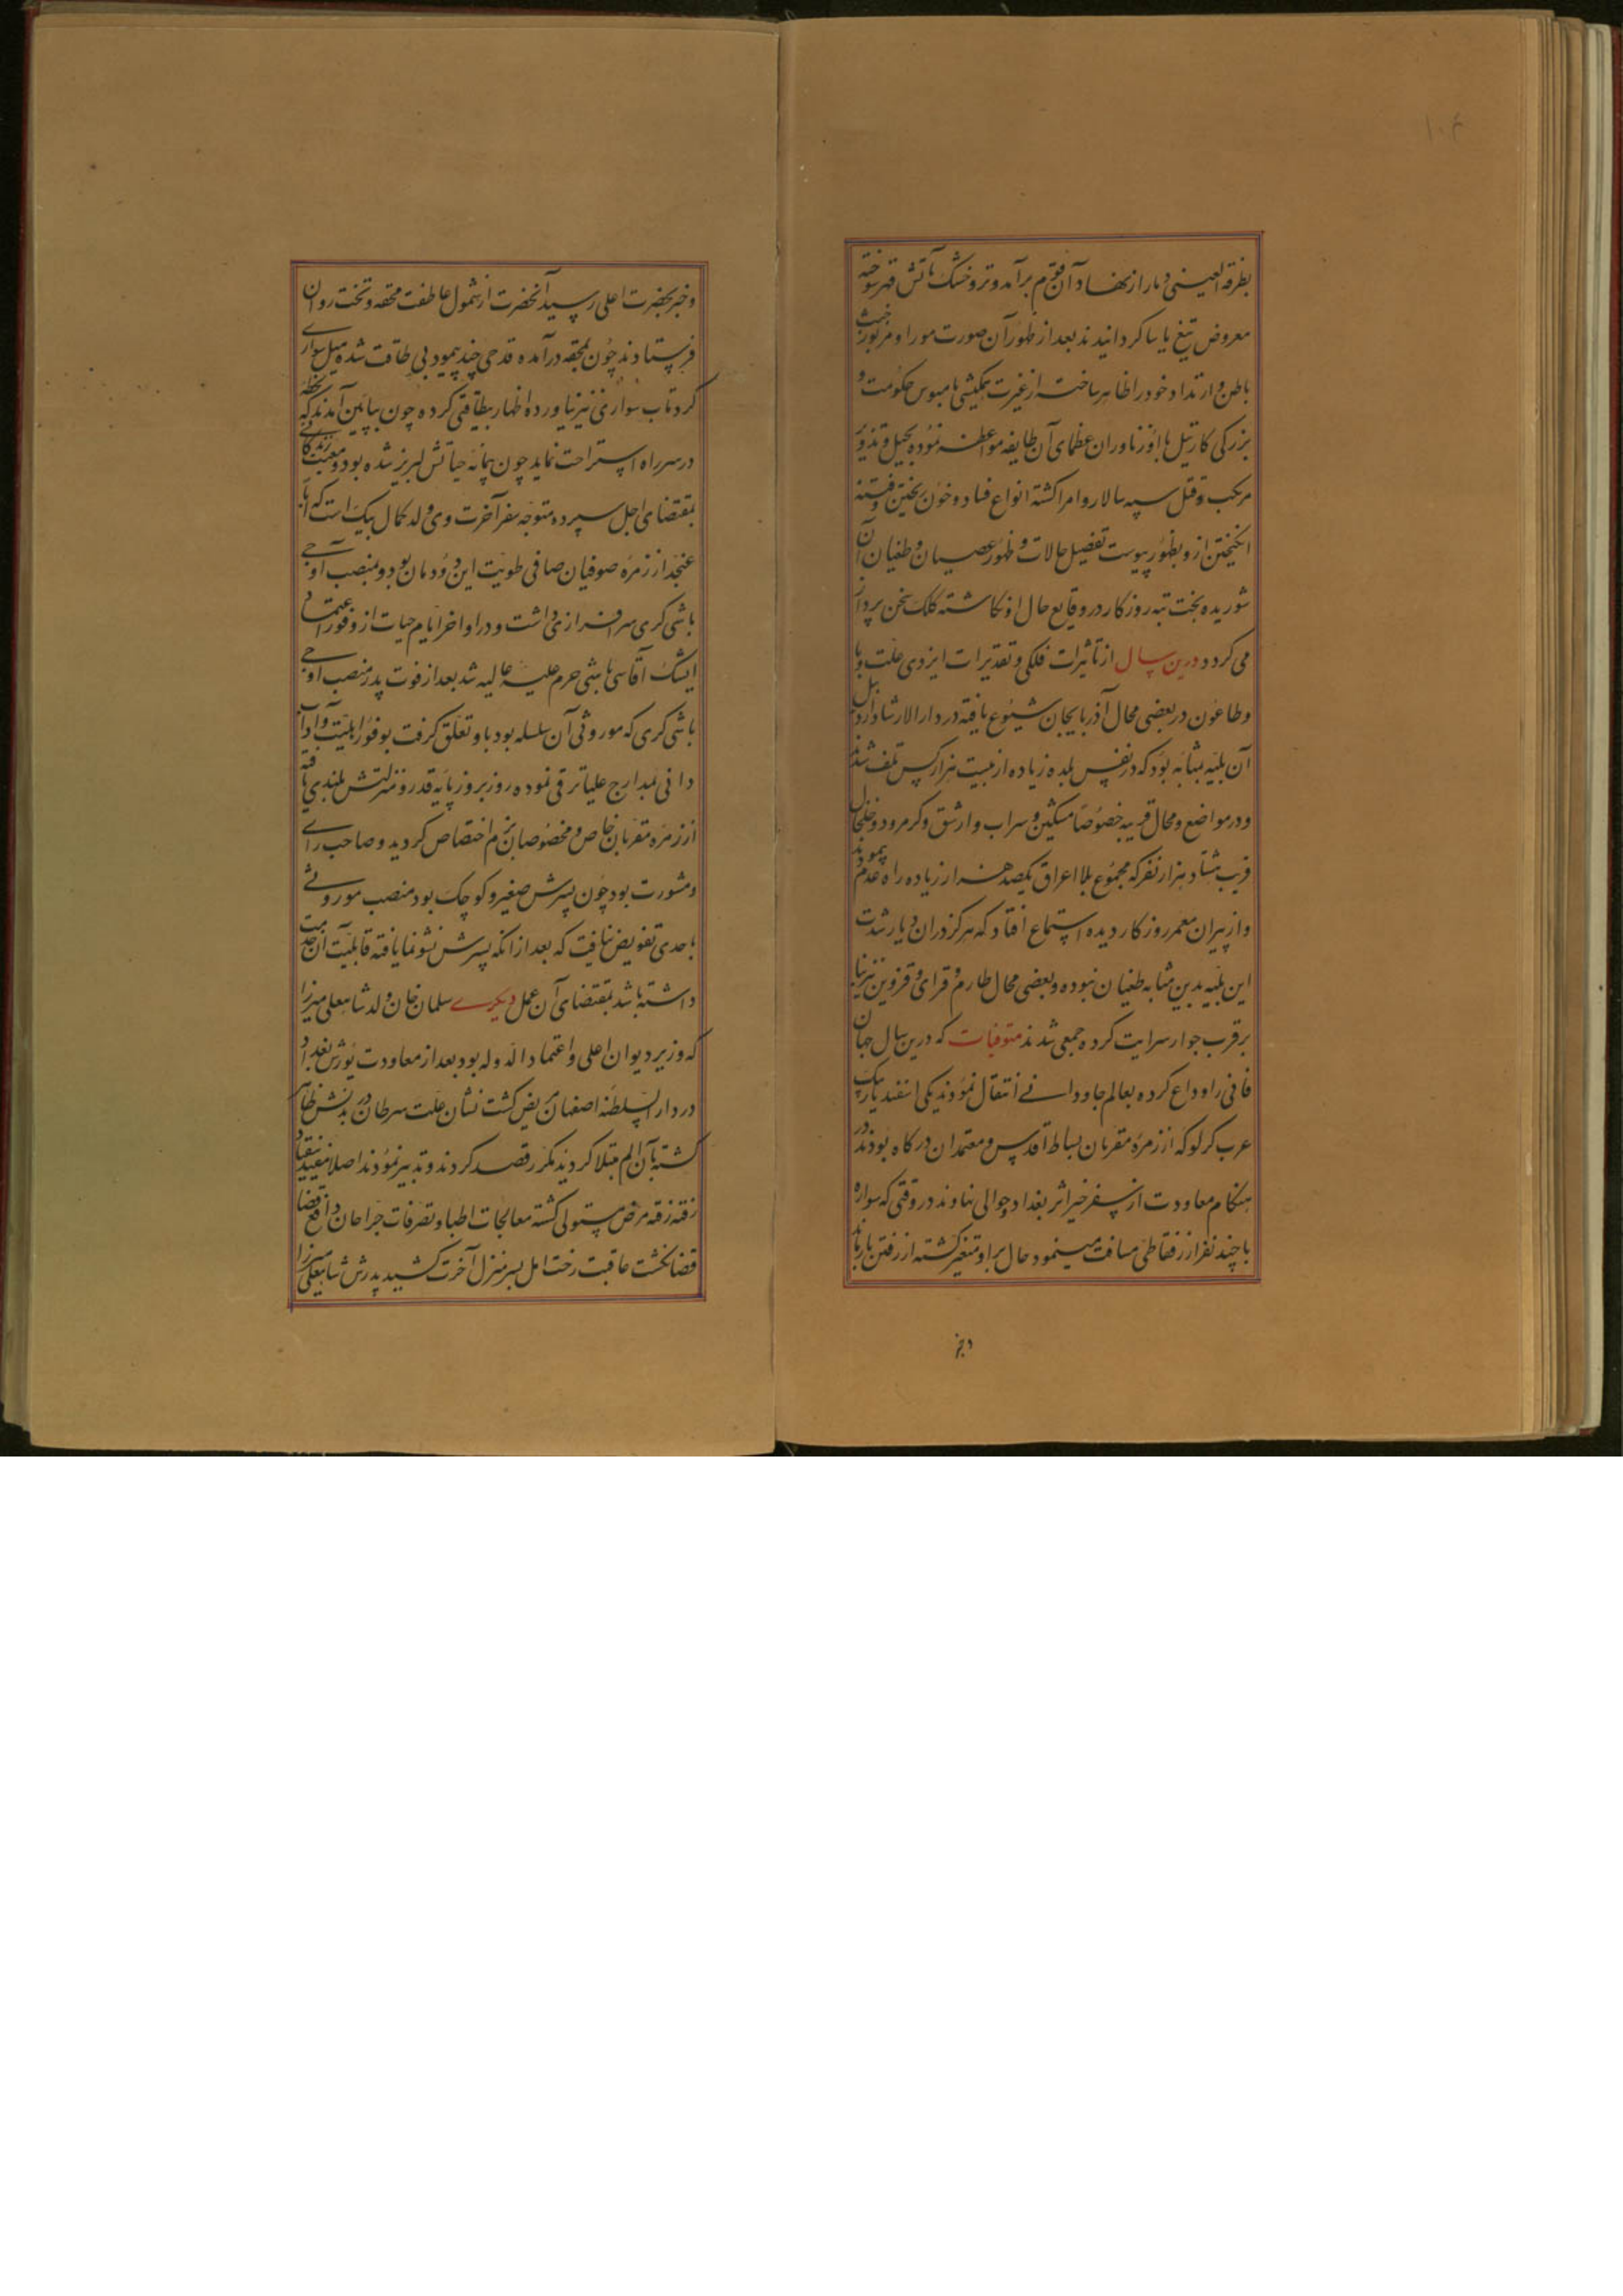 ۱۰۴
بطرفة العینی دمار از نهاد آن قوم برآمد و تر و خشک بآتش قهر سوخته
معروض تیغ یاسا کردانیدند بعد از ظهور آن صورت موراو مزبور خبث
باطن و ارتداد خود را ظاهر ساخت از غیرت همکیشی با مبوس حکومت و
بزرکی کارتیل با ازناوران عظمای آن طایفه مواطنه نموده بحیل و تذویر
مرتکب قتل سپه سالار و امرا کشته انواع فساد و خون ریختن و فتنه
انکیختن ازو بظهور پیوست تفصیل حالات و ظهور عصیان و طغیان آن
شوریده بخت تبه روزکار در وقایع حال او نکاشته کلک سخن پرداز
می کردد درین سال از تأثیرات فلکی و تقدیرات ایزدی علت وبا
و طاعون در بعضی محال آذربایجان شیوع یافته در دار الارشاد اردبیل
آن بلیه بمثابه بود که در نفس بلده زیاده از بیست هزار کس تلف شدند
و در مواضع و محال قریبه خصوصا مشکین و سراب و ارشق و کرمرود و خلخال
قریب هشتاد هزار نفر که مجموع بلا اغراق یکصد هزار زیاده راه عدم پیمودند
و از پیران معمر روزکار دیده استماع افتاد که هرکز در ان دیار شدت
این بلیه بدین مثابه طغیان نبوده و بعضی محال طارم و قرای قزوین نیز بنا
بر قرب جوار سرایت کرده جمعی شدند متوفیات که درین سال جهان
فانی را وداع کرده بعالم جاودانی انتقال نمودند یکی اسفندیار بیک
عرب کرلو که از زمره مقربان بساط اقدس و معتمدان درکاه بودند در
هنکام معاودت از سفر خیر اثر بغداد حوالی نهاوند در وقتی که سواره
با چند نفر از رفقا طی مسافت مینمود حال بر او متغیر کشته از رفتن بازماند
و خبر
و خبر بحضرت اعلی رسید آنحضرت از شمول عاطفت محفه و تخت روان
فرستادند چون بمحفه درآمده قدحی چند پیمود بی طاقت شده میل سواری
کرد تاب سواری نیز نیاورده اظهار بیطاقتی کرده چون بپایین آمدند که لحظه
در سر راه استراحت نماید چون پیمانه حیاتش لبریز شده بود ودیعت زندکانی
بمقتضای اجل سپرده متوجه سفر آخرت وی ولد کمال بیک است که ابا
عن جد از زمره صوفیان صافی طویت این دودمان بود و بمنصب آوجی
باشی کری سرافرازی داشت و در اواخر ایام حیات از وفور اعتماد
ایشک آقاسی باشی حرم علیه عالیه شد بعد از فوت پدر منصب آوجی
باشی کری که موروثی آن سلسله بود باو تعلق کرفت بوفور اهلیت و آداب
دانی بمدارج علیا ترقی نموده روز بروز پایه قدر و منزلتش بلندی یافته
از زمره مقربان خاص و مخصوصان بزم اختصاص کردید و صاحب رای
و مشورت بود چون پسرش صغیر و کوچک بود منصب موروثی
باحدی تفویض نیافت که بعد از انکه پسرش نشو نما یافته قابلیت آن خدمت
داشته باشد بمقتضای آن عمل دیکری سلمان خان ولد شاهعلی میرزا
که وزیر دیوان اعلی و اعتماد الدوله بود بعد از معاودت یورش بغداد
در دار السلطنه اصفهان مریض کشت نشان علت سرطان در بدنش ظاهر
کشته بآن الم مبتلا کردید مکرر قصد کردند و تدبیر نمودند اصلا مفید نیفتاد
رفته رفته مرض مستولی کشته معالجات اطبا و تصرفات جراحان دافع قضا
قضا نکشت عاقبت رخت امل بسر منزل آخرت کشید پدرش شاهعلی میرزا